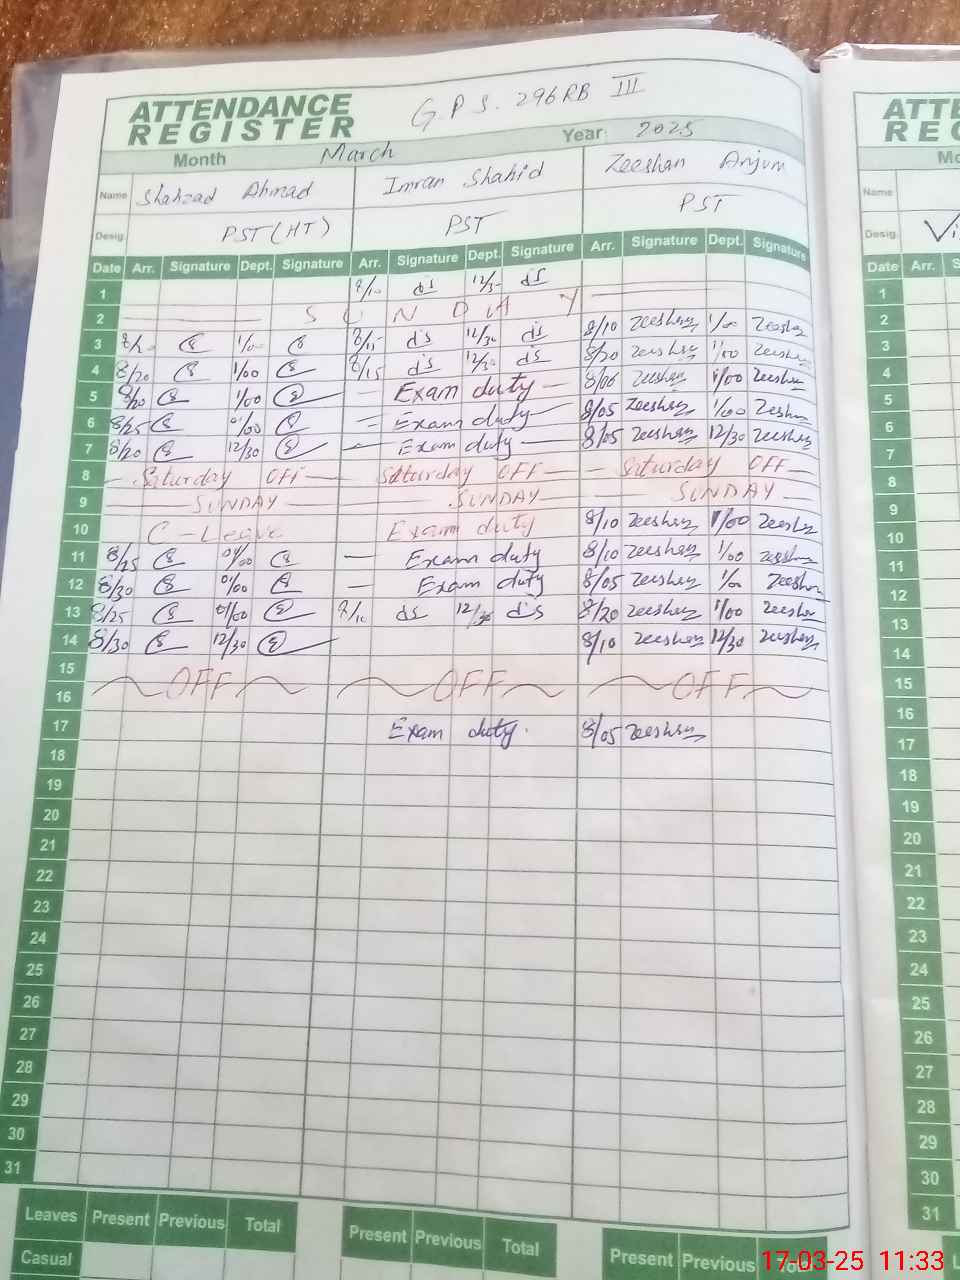 ATTENDANCE REGISTER G.P.S. 296RB III
Month March Year 2025
Name Shahzad Ahmad Imran Shahid Zeeshan Anjum
Desig. PST (HT) PST PST
Date Arr. Signature Dept. Signature Arr. Signature Dept. Signature Arr. Signature Dept. Signature
1 8/10 12/30
2 SUNDAY
3 1/00 8/15 12/30 8/10 Zeeshan 1/00 Zeeshan
4 8/20 1/00 8/15 12/30 8/20 Zeeshan 1/00 Zeeshan
5 8/20 1/00 Exam duty 8/06 Zeeshan 1/00 Zeeshan
6 8/25 01/00 Exam duty 8/05 Zeeshan 1/00 Zeeshan
7 8/20 12/30 Exam duty 8/05 Zeeshan 12/30 Zeeshan
8 Saturday OFF Saturday OFF Saturday OFF
9 SUNDAY SUNDAY SUNDAY
10 C-Leave Exam duty 8/10 Zeeshan 1/00 Zeeshan
11 8/25 01/00 Exam duty 8/10 Zeeshan 1/00 Zeeshan
12 8/30 01/00 Exam duty 8/05 Zeeshan 1/00 Zeeshan
13 8/25 01/00 8/10 12/30 8/20 Zeeshan 1/00 Zeeshan
14 8/30 12/30 8/10 Zeeshan 12/30 Zeeshan
15
16 OFF OFF OFF
17 Exam duty. 8/05 Zeeshan
18
19
20
21
22
23
24
25
26
27
28
29
30
31
Leaves Present Previous Total Present Previous Total Present Previous
Casual
ATTE
REG
Name
Desig.
Date Arr.
1
2
3
4
5
6
7
8
9
10
11
12
13
14
15
16
17
18
19
20
21
22
23
24
25
26
27
28
29
30
31
17-03-25 11:33